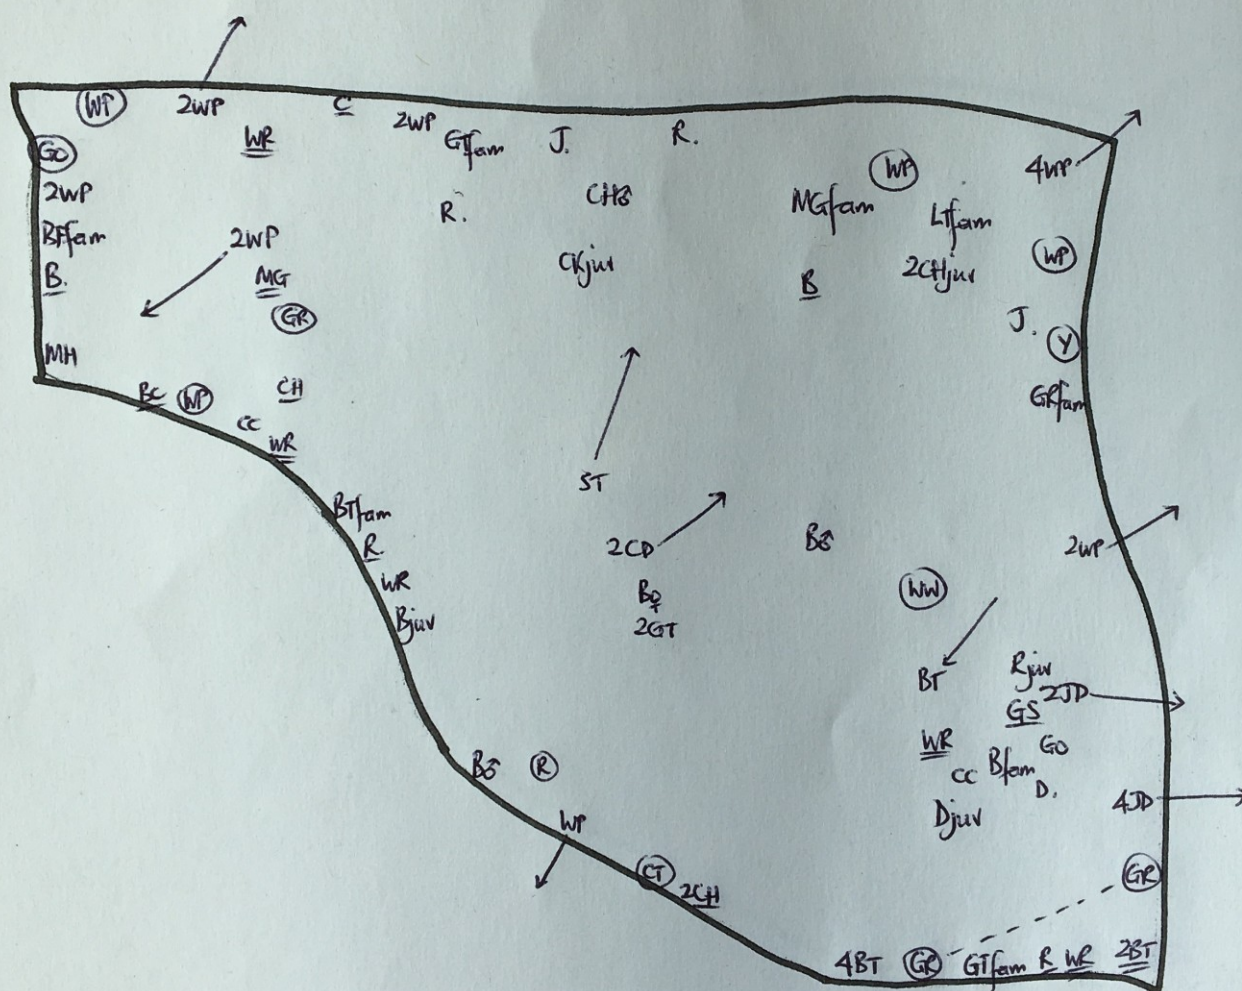 WP 2WP C 2WP GTfam J. R.
WR
GO
2WP
R. CH♂ MGfam WP LTfam 4WP
BFfam 2WP
B. MG CKjuv B 2CHjuv WP
GR J. Y
MH
BC WP CH GRfam
CC WR
ST
BTfam
R. 2CD B♂ 2WP
WR B♀ WW
Bjuv 2GT
BT Rjuv 2JD
GS
WR GO
B♂ R CC Bfam D.
WP Djuv 4JD
CT GR
2CH
4BT GR GTfam R WR 2BT